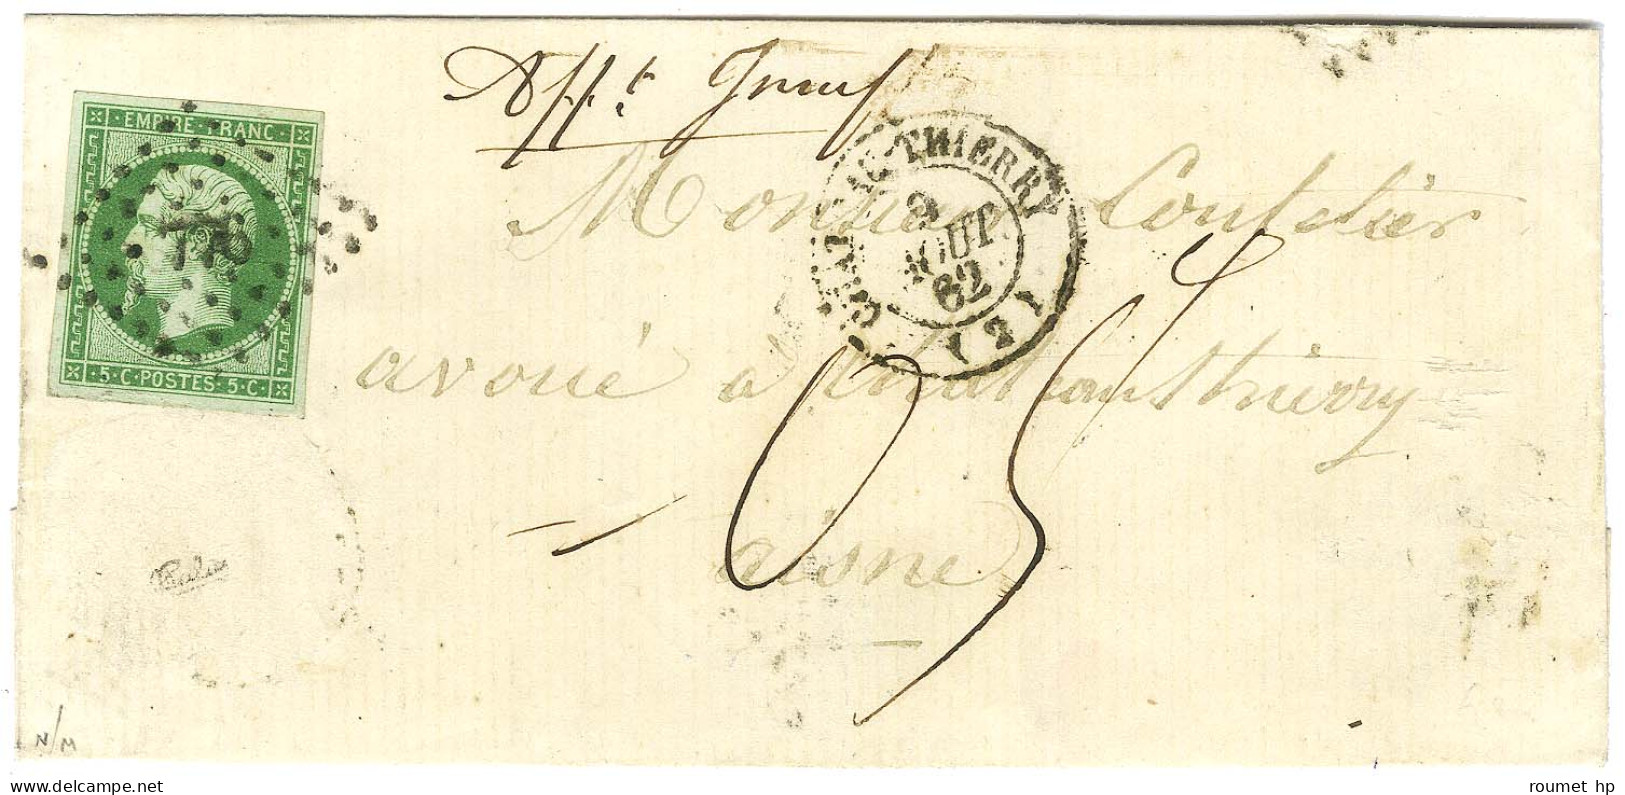 Afft. Insuf
EMPIRE FRANC
778
5·C·POSTES·5·C
CHATEAU-THIERRY
2
AOUT
62
(2)
Monsieur Coutelier
avoué à Chateau thierry
aisne
05
Calves
N/M
roumet hp